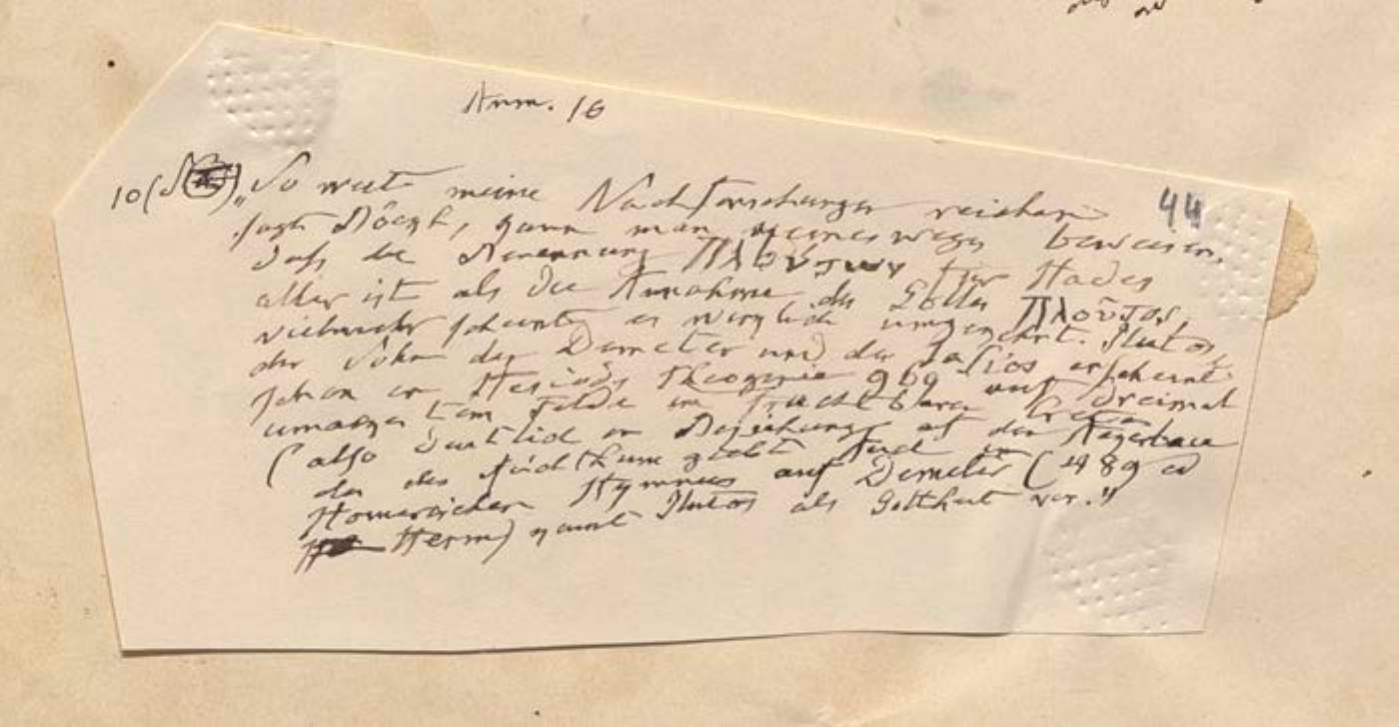 Anm. 16
44
10( „So weit meine Nachforschungen reichen
sagt Böckh, kann man keineswegs beweisen,
daß die Benennung Πλούτων für Hades
älter ist als die Annahme des Gottes Πλοῦτος,
vielmehr scheint es wirklich umgekehrt. Plutos,
der Sohn der Demeter und des Jasios erscheint
schon in Hesiods Theogonie 969 auf dreimal
umackertem Felde im fruchtbaren Kreta
(also deutlich in Beziehung auf den Ackerbau
der des Reichthum giebt. Auch im
Homerischen Hymnus auf Demeter (489 ed
Herm) kommt Plutos als Gottheit vor."